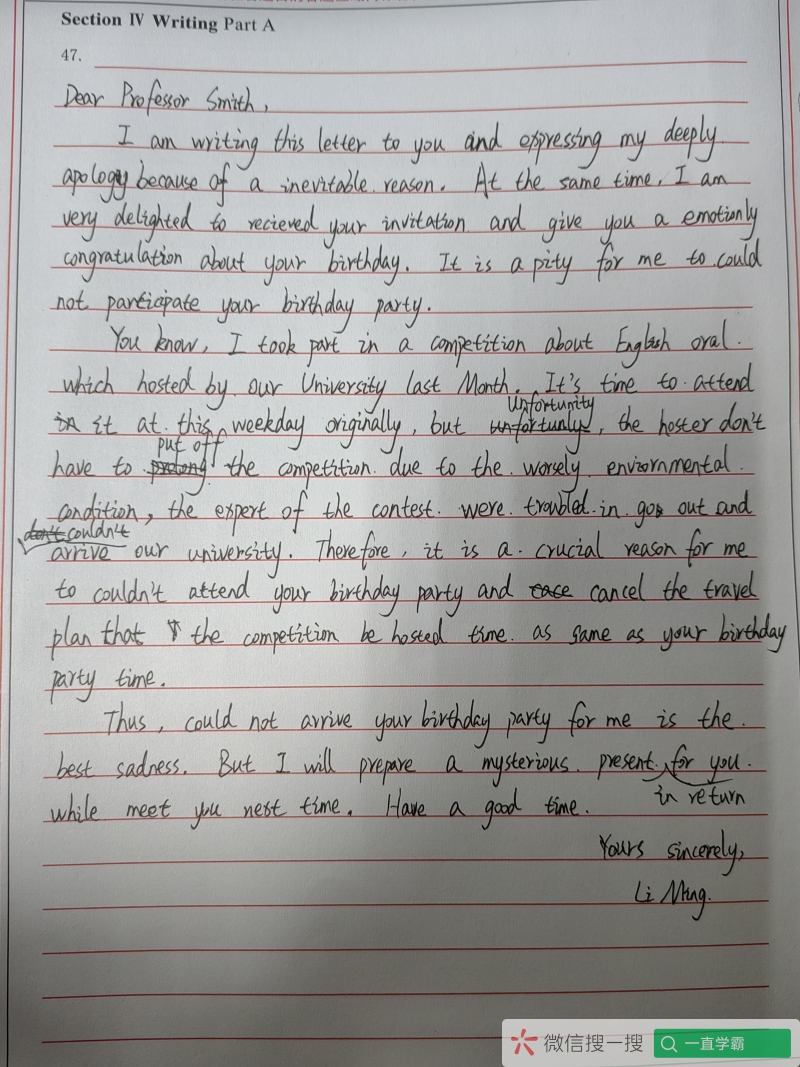 Section IV Writing Part A
47.
Dear Professor Smith,
I am writing this letter to you and expressing my deeply
apology because of a inevitable reason. At the same time, I am
very delighted to recieved your invitation and give you a emotionly
congratulation about your birthday. It is a pity for me to could
not participate your birthday party.
You know, I took part in a competition about English oral.
which hosted by our University last Month. It's time to attend
it at this weekday originally, but Unfortunity, the hoster don't
have to put off the competition due to the worsely enviornmental
condition, the expert of the contest were troubled in go out and
couldn't
arrive our university. Therefore, it is a crucial reason for me
to couldn't attend your birthday party and cancel the travel
plan that the competition be hosted time as same as your birthday
party time.
Thus, could not arrive your birthday party for me is the
best sadness. But I will prepare a mysterious present for you
in return
while meet you next time. Have a good time.
Yours sincerely,
Li Ming.
微信搜一搜
一直学霸